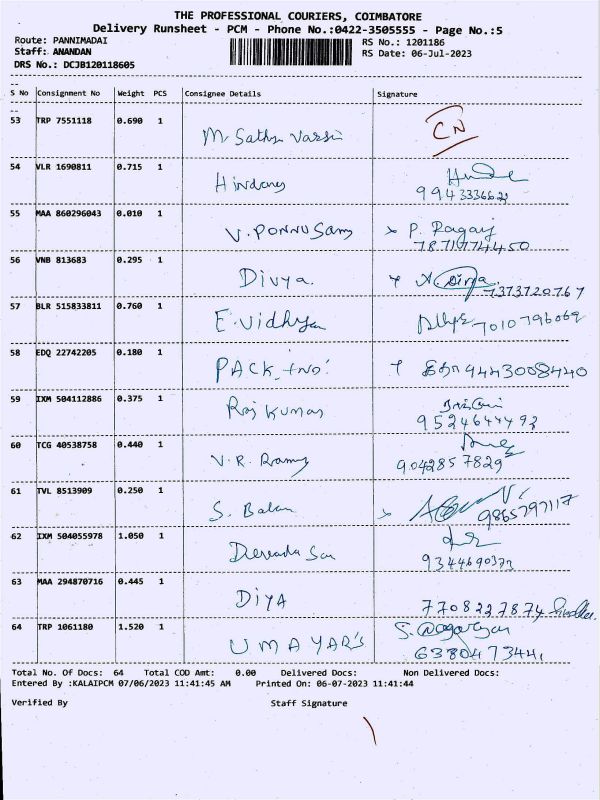 THE PROFESSIONAL COURIERS, COIMBATORE
Delivery Runsheet - PCM - Phone No.:0422-3505555 - Page No.:5
Route: PANNIMADAI RS No.: 1201186
Staff: ANANDAN RS Date: 06-Jul-2023
DRS No.: DCJB120118605
S No Consignment No Weight PCS Consignee Details Signature
53 TRP 7551118 0.690 1
CN
54 VLR 1690811 0.715 1
55 MAA 860296043 0.010 1
V. PONNUSamy P. Ragav
56 VNB 813683 0.295 1
Divya.
7373720767
57 BLR 515833811 0.760 1
E. Vidhya 7010796069
58 EDQ 22742205 0.180 1
9443008440
59 IXM 504112886 0.375 1
Raj kumar
9524644492
60 TCG 40538758 0.440 1
V. R. Ramy 9042857829
61 TVL 8513909 0.250 1
S. Balan 9865797117
62 IXM 504055978 1.050 1
9344690373
63 MAA 294870716 0.445 1
DIYA 7708227874
64 TRP 1061180 1.520 1
UMAYAR'S
Total No. Of Docs: 64 Total COD Amt: 0.00 Delivered Docs: Non Delivered Docs:
Entered By :KALAIPCM 07/06/2023 11:41:45 AM Printed On: 06-07-2023 11:41:44
Verified By Staff Signature